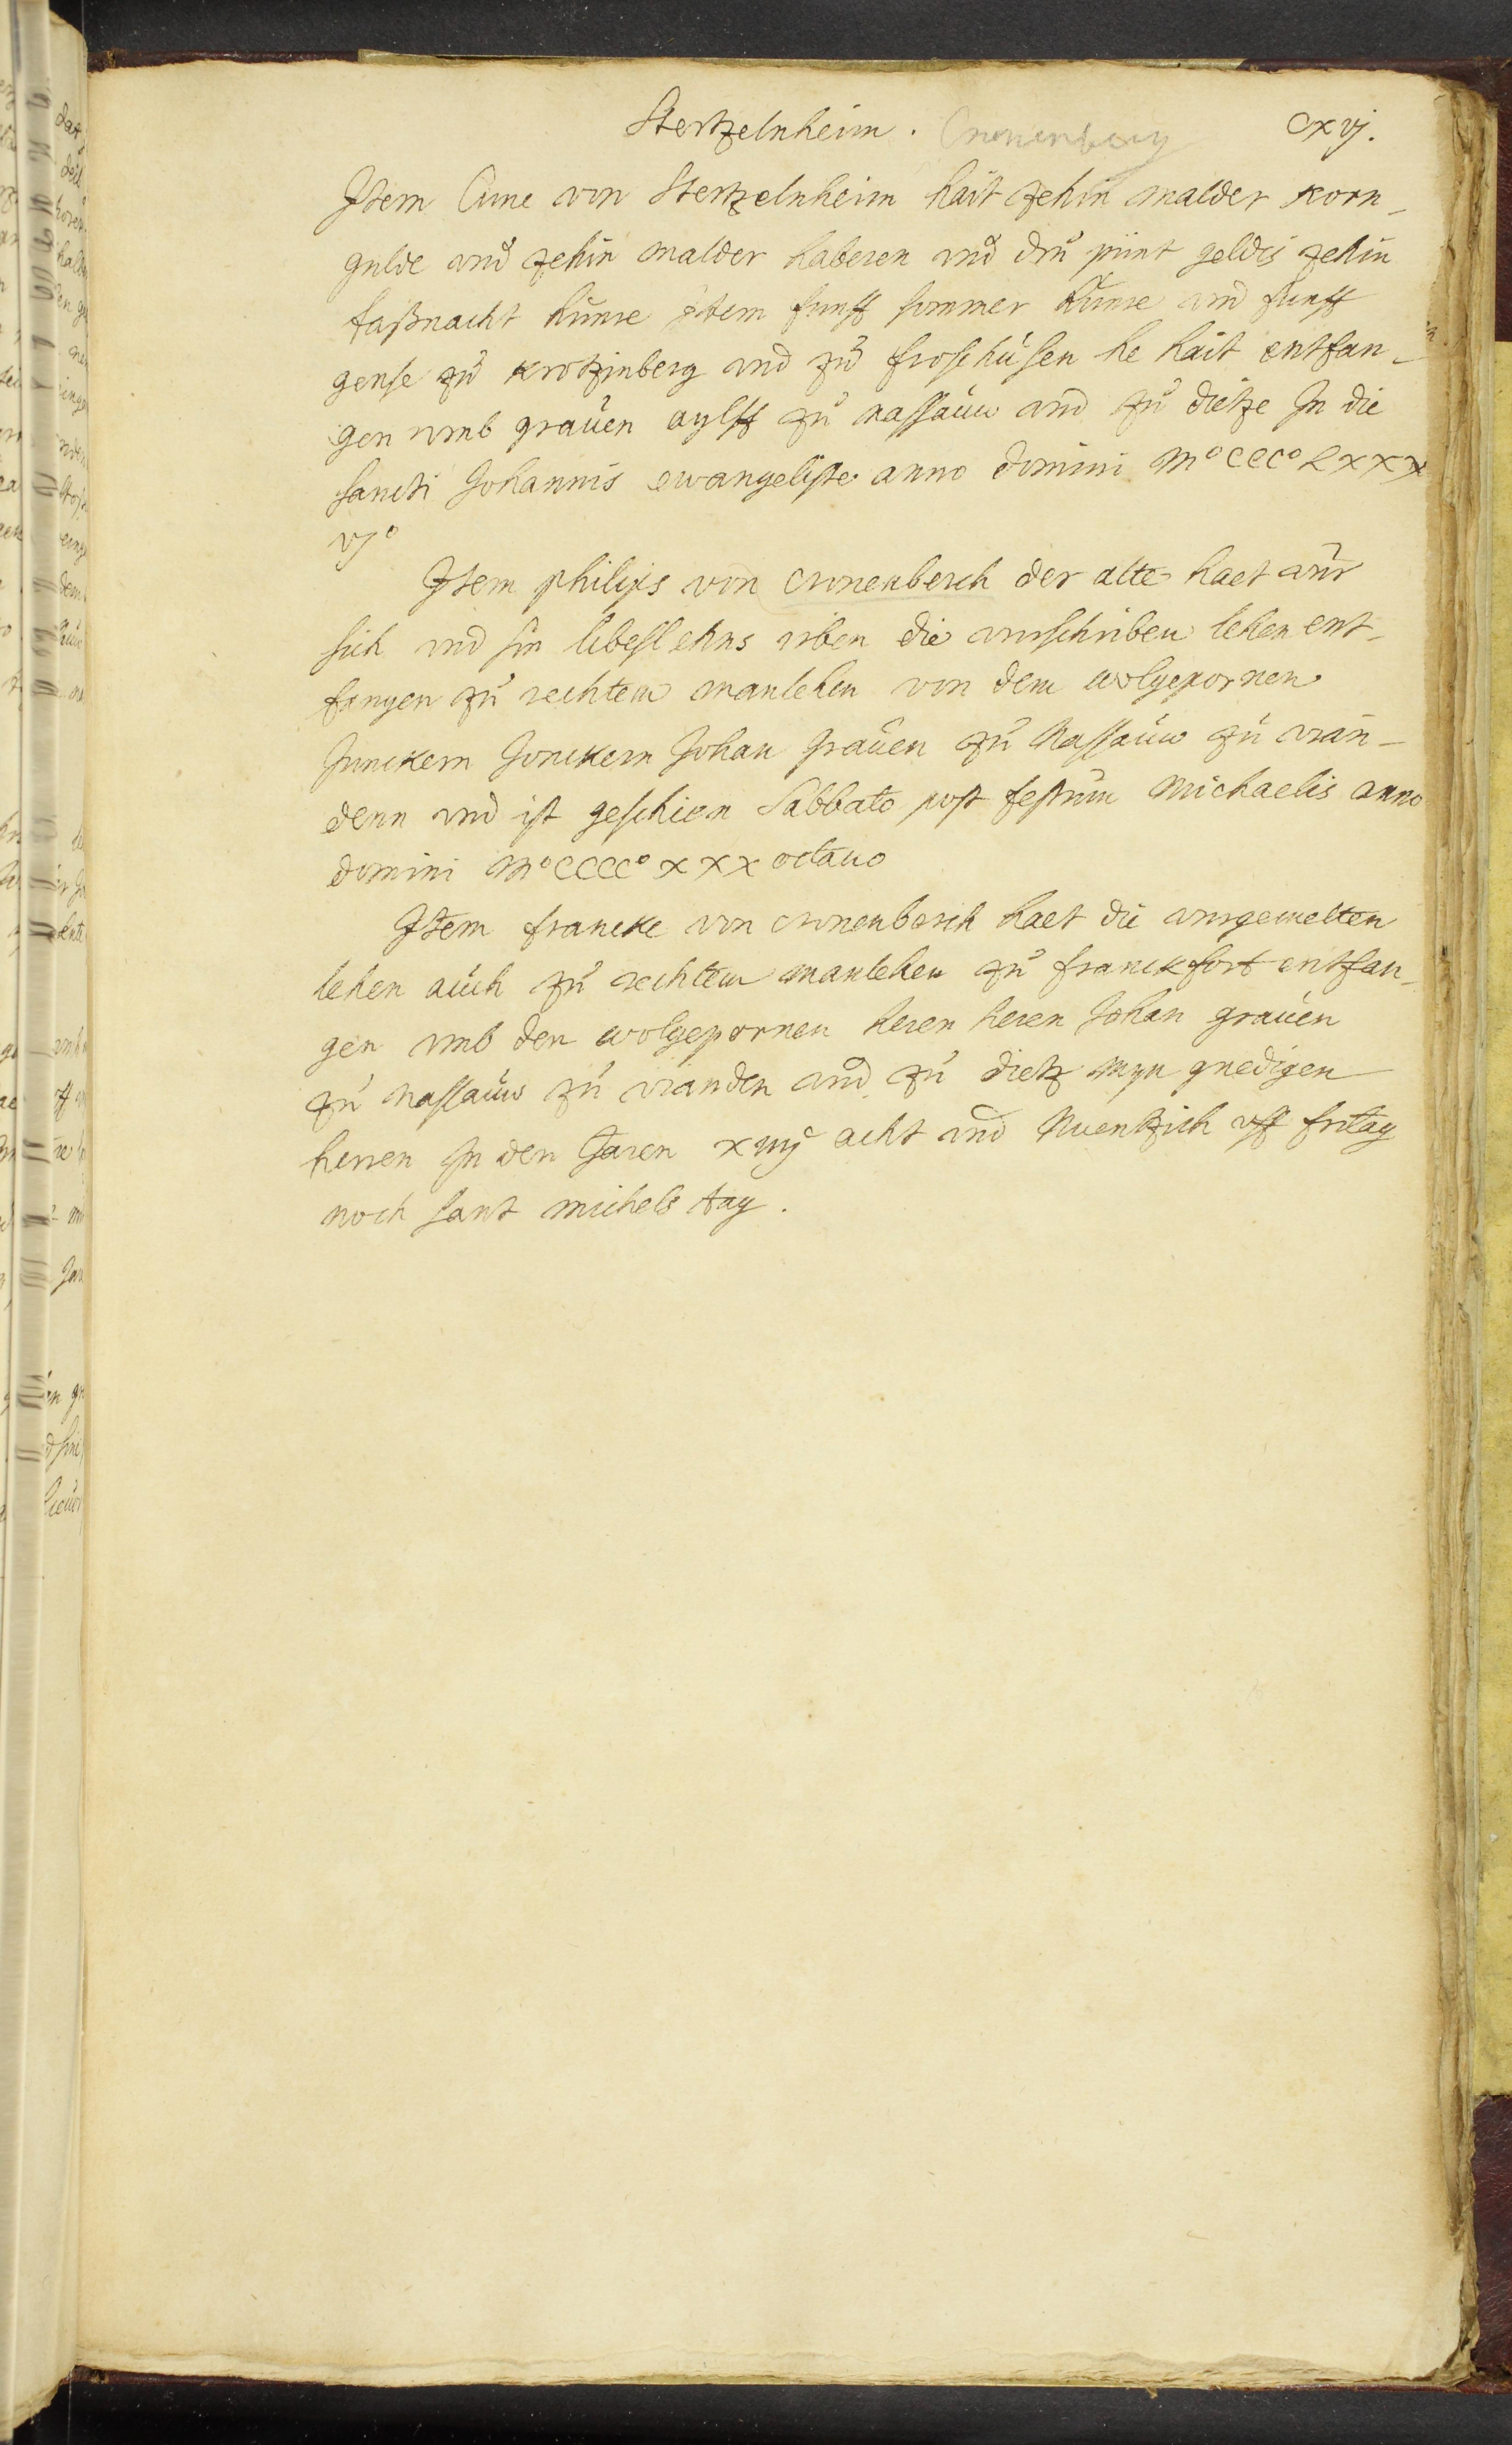 Stertzelnheim. Cronenberg cxvj.
Item Cune von Stertzelnheim hait zehin malder korn-
gulde und zehin malder haberen und dru punt geldis zehin
faßnacht hunre jtem funff sommer hunre und funff
gense zu krotzinberg und zu froschusen he hait entfan-
gen umb grauen aylff zu nassauw und zu dietze In die
sancti Johannis ewangeliste anno domini Mº CCCº Lxxx
vjº
Item philips von cronenberch der alte haet vur
sich und sin libeslehns erben die vurschriben lehen ent-
fangen zu rechtem manlehen von dem wolgepornen
Junckern Jonckern Johan Grauen zu Nassauw zu vian-
denn und ist geschien Sabbato post festum Michaelis anno
domini Mº CCCCº xxx octauo
Item francke von cronenberch haet die vurgemelten
lehen auch zu rechtem manlehen zu franckfort entfan-
gen umb den wolgepornen heren heren Johan grauen
zu nassauw zu vianden und zu dietz myn gnedigen
herren In den Jaren xiiij acht und Nuentzich uff fritag
noch sant michels tag.